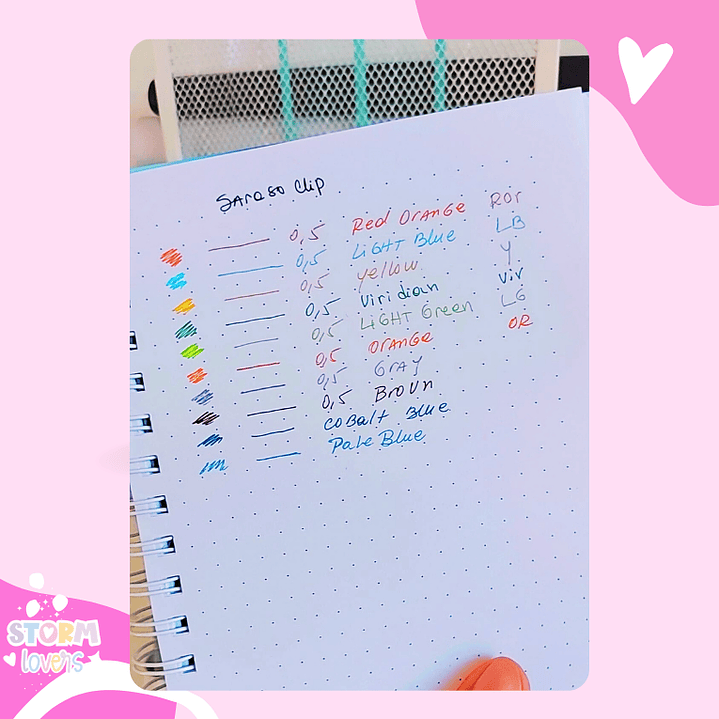 Saraso Clip
0,5 Red Orange ROr
0,5 LIGHT Blue LB
0,5 yellow Y
0,5 Viridian Vir
0,5 LIGHT Green LG
0,5 Orange OR
0,5 GRAY
0,5 Broun
Cobalt Blue
Pale Blue
STORM
lovers